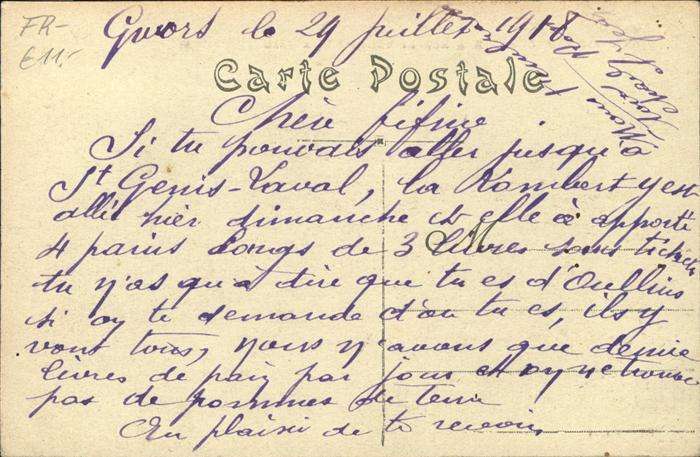 FR-
€11,-
Givors le 29 juillet 1918
Carte Postale
Chère fifine
Si tu pouvais aller jusqu'a
St Genis-Laval, la Rambert y est
allé hier dimanche et elle à apporté
4 pains longs de 3 livres sans ticket
tu n'as qu'a dire que tu es d'Oullins
si on te demande d'ou tu es, ils y
vont tous, nous n'avons que demie
livres de pain par jour et on ne trouve
pas de pommes de terre
Au plaisir de te revoir,